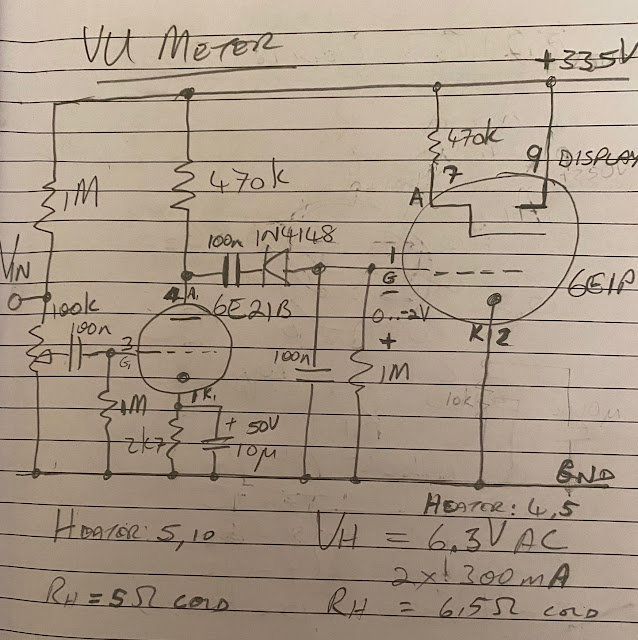 VU METER
+335V
470k
1M
470k
7
9
DISPLAY
A
100n
1N4148
VIN
1
G
6E1P
4
A1
6E21B
0..-2V
100k
100n
3
G1
100n
+
1M
K
2
1M
K1
10k
2k7
+ 50V
10μ
GND
HEATER: 4,5
HEATER: 5,10
VH = 6.3V AC
2x! 300mA
RH = 5Ω COLD
RH = 6,5Ω COLD